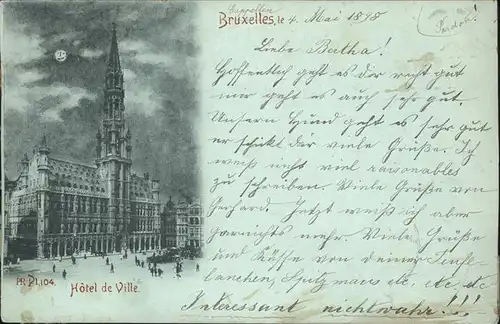 Bruxelles, le 4. Mai 1898
Liebe Bertha!
Hoffentlich geht es dir recht gut
mir geht es auch sehr gut
Unsern Hund geht es sehr gut
er schickt dir viele Grüße. Ich
weiß nicht viel raisonables
zu schreiben. Viele Grüße von
Gerhard. Jetzt weiß ich aber
garnichts mehr. Viele Grüße
und Küsse von deiner
Spitzmaus etc, etc, etc
Interessant nichtwahr!!!!
Hôtel de Ville.